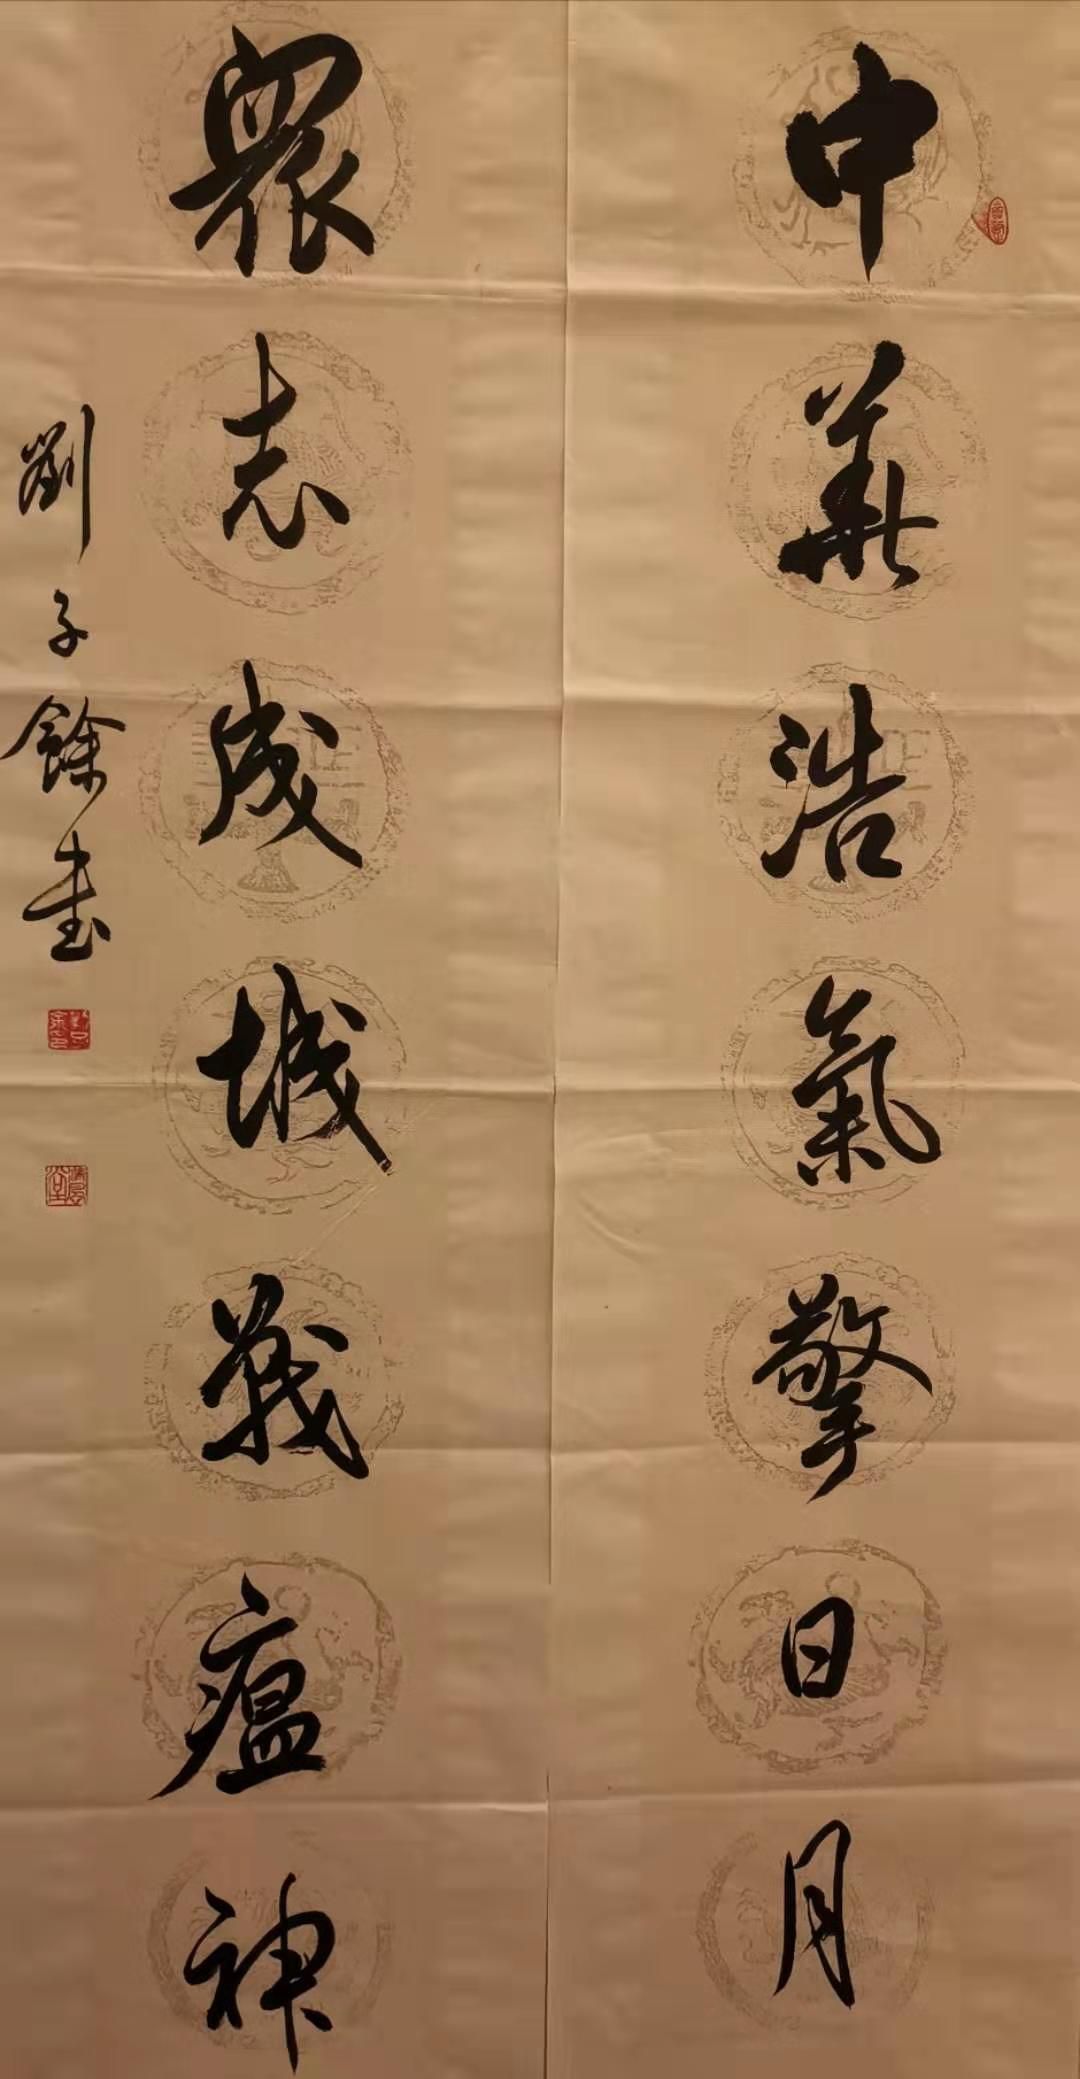 中華浩氣擎日月
眾志成城戰瘟神
劉子餘書